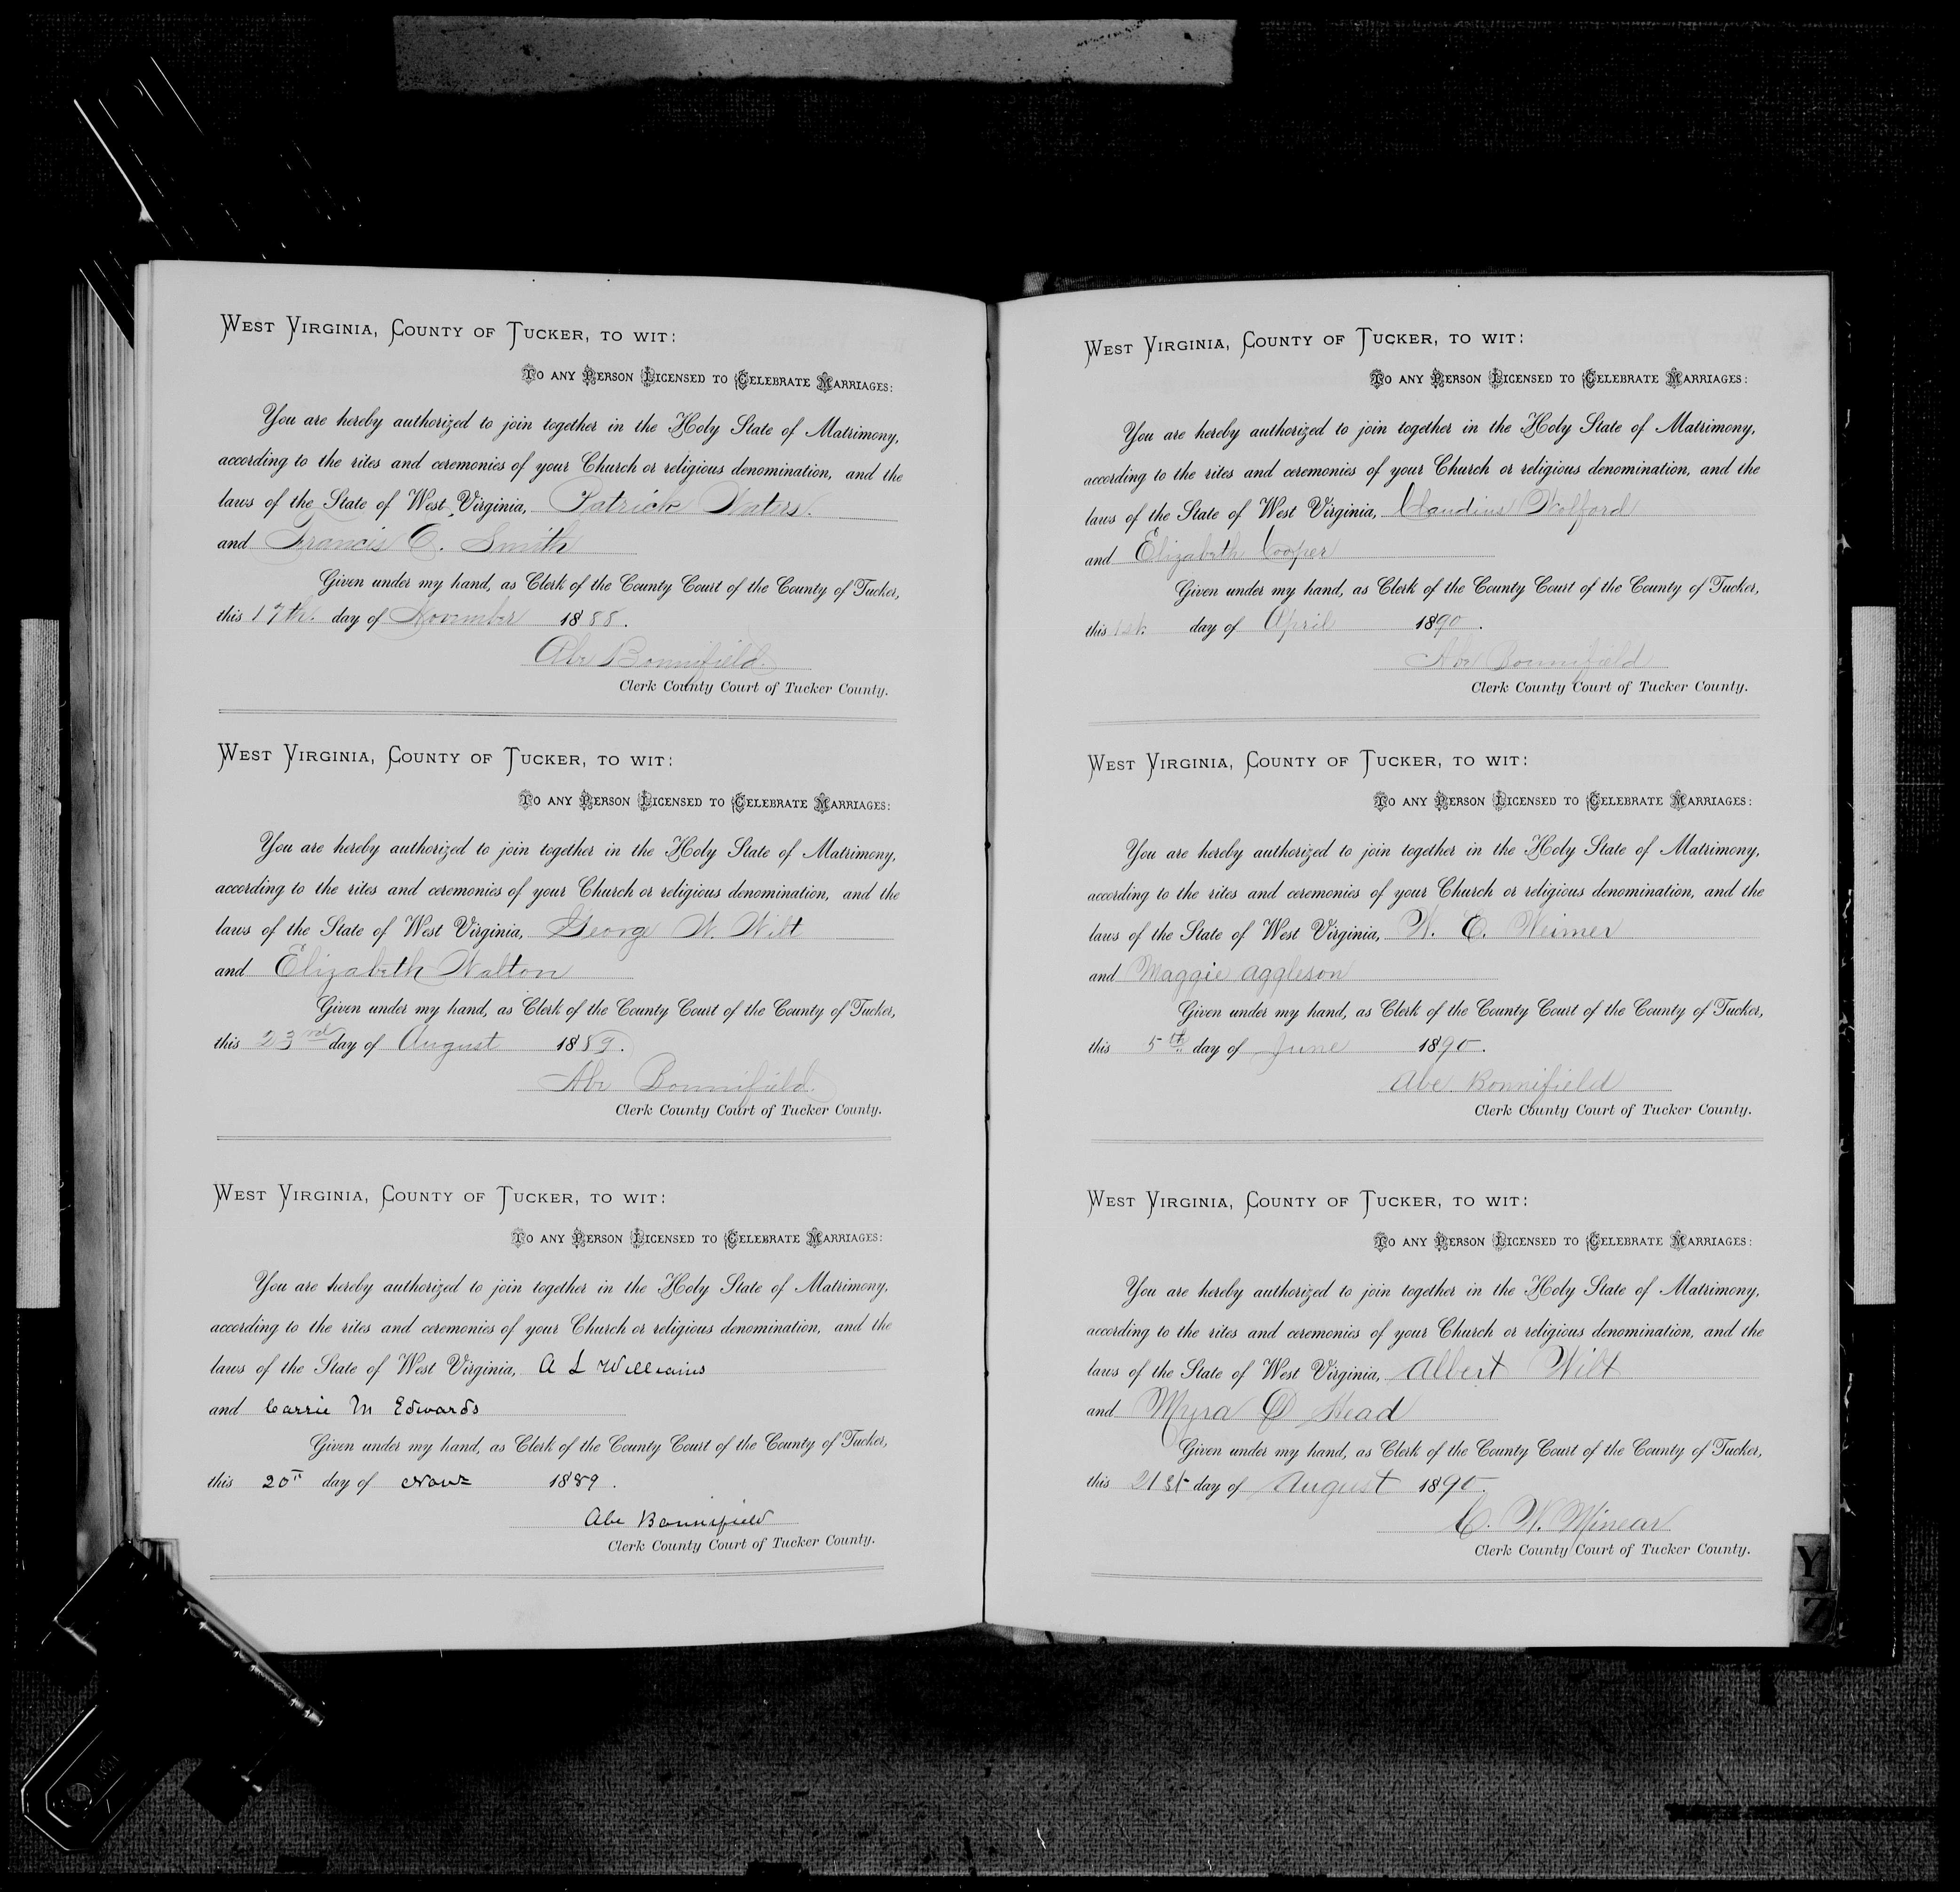 West Virginia, County of Tucker, to wit:
To any Person Licensed to Celebrate Marriages:
You are hereby authorized to join together in the Holy State of Matrimony,
according to the rites and ceremonies of your Church or religious denomination, and the
laws of the State of West Virginia, Patrick Waters.
and Francis C. Smith
Given under my hand, as Clerk of the County Court of the County of Tucker,
this 17th. day of November 1888.
Abe Bonnifield.
Clerk County Court of Tucker County.
West Virginia, County of Tucker, to wit:
To any Person Licensed to Celebrate Marriages:
You are hereby authorized to join together in the Holy State of Matrimony,
according to the rites and ceremonies of your Church or religious denomination, and the
laws of the State of West Virginia, George W. Wilt
and Elizabeth Walton
Given under my hand, as Clerk of the County Court of the County of Tucker,
this 23rd day of August 1889.
Abe Bonnifield.
Clerk County Court of Tucker County.
West Virginia, County of Tucker, to wit:
To any Person Licensed to Celebrate Marriages:
You are hereby authorized to join together in the Holy State of Matrimony,
according to the rites and ceremonies of your Church or religious denomination, and the
laws of the State of West Virginia, A L Williams
and Carrie M Edwards
Given under my hand, as Clerk of the County Court of the County of Tucker,
this 20T day of Novr 1889.
Abe Bonnifield
Clerk County Court of Tucker County.
West Virginia, County of Tucker, to wit:
To any Person Licensed to Celebrate Marriages:
You are hereby authorized to join together in the Holy State of Matrimony,
according to the rites and ceremonies of your Church or religious denomination, and the
laws of the State of West Virginia, Claudius Wolford
and Elizabeth Cooper
Given under my hand, as Clerk of the County Court of the County of Tucker,
this 1st. day of April 1890.
Abe Bonnifield
Clerk County Court of Tucker County.
West Virginia, County of Tucker, to wit:
To any Person Licensed to Celebrate Marriages:
You are hereby authorized to join together in the Holy State of Matrimony,
according to the rites and ceremonies of your Church or religious denomination, and the
laws of the State of West Virginia, W. E. Weimer
and Maggie Aggleson
Given under my hand, as Clerk of the County Court of the County of Tucker,
this 5th day of June 1890.
Abe Bonnifield
Clerk County Court of Tucker County.
West Virginia, County of Tucker, to wit:
To any Person Licensed to Celebrate Marriages:
You are hereby authorized to join together in the Holy State of Matrimony,
according to the rites and ceremonies of your Church or religious denomination, and the
laws of the State of West Virginia, Albert Wilt
and Myra D Head
Given under my hand, as Clerk of the County Court of the County of Tucker,
this 21st day of August 1890.
C. W. Minear
Clerk County Court of Tucker County.
Y
Z